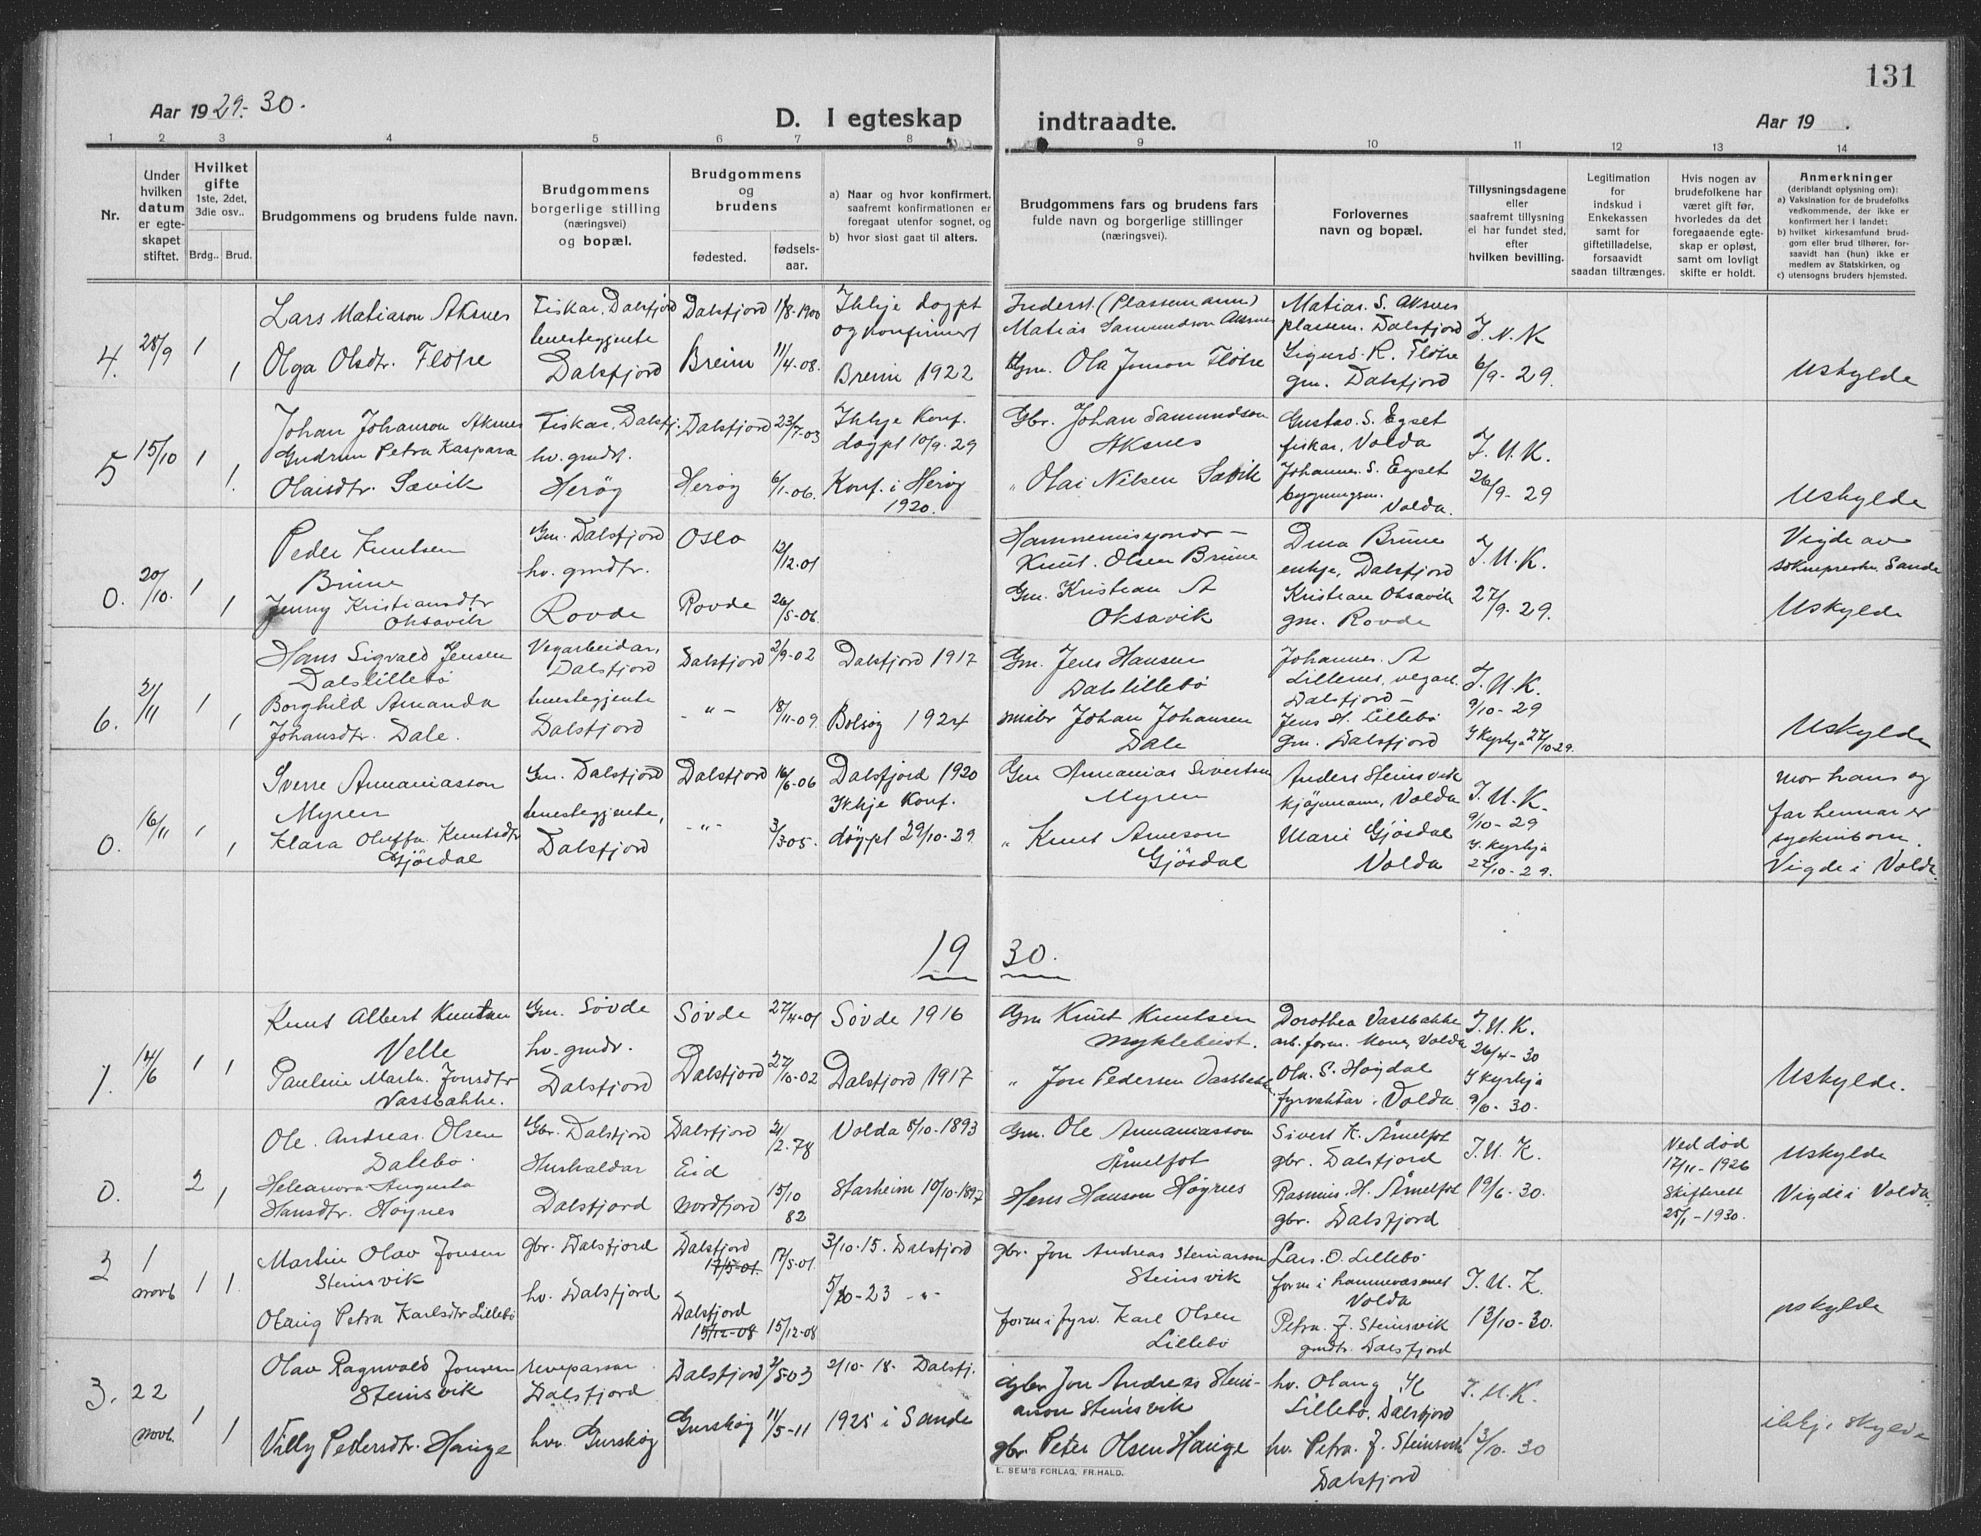 131
Aar 19 29.-30.
D. I egteskap indtraadte.
Aar 19 .
1 2 3 4 5 6 7 8 9 10 11 12 13 14
Nr.
Under hvilken datum er egte-skapet stiftet.
Hvilket gifte 1ste, 2det, 3die osv..
Brdg.. Brud.
Brudgommens og brudens fulde navn.
Brudgommens borgerlige stilling (næringsvei) og bopæl.
Brudgommens og brudens
fødested.
fødsels-aar.
a) Naar og hvor konfirmert, saafremt konfirmationen er foregaat utenfor sognet, og
b) hvor sidst gaat til alters.
Brudgommens fars og brudens fars fulde navn og borgerlige stillinger (næringsvei).
Forlovernes navn og bopæl.
Tillysningsdagene eller saafremt tillysning ei har fundet sted, efter hvilken bevilling.
Legitimation for indskud i Enkekassen samt for giftetilladelse, forsaavidt saadan tiltrænges.
Hvis nogen av brudefolkene har været gift før, hvorledes da det foregaaende egte-skap er opløst, samt om lovligt skifte er holdt.
Anmerkninger
(deriblandt oplysning om):
a) Vaksination for de brudefolks vedkommende, der ikke er konfirmert her i landet;
b) hvilket kirkesamfund brud-gom eller brud tilhører, for-saavidt han (hun) ikke er medlem av Statskirken, og
c) utensogns bruders hjemsted.
4. 28/9 1 1
Lars Matiason Aksnes
Olga Olsdtr. Fløtre
Fiskar, Dalsfjord
tenestegjente
Dalsfjord
Dalsfjord
Breim
1/8-1900
11/4-08.
Ikkje døypt
og konfirmert
Breim 1922
Inderst. (Plassemann)
Matias Samundson Aksnes
Gm. Ola Jonson Fløtre
Matias. S. Aksnes
plassem. Dalsfjord
Sigurd. R. Fløtre
gm. Dalsfjord
6/9-29.
Uskylde
5 15/10 1 1.
Johan Johanson Aksnes
Gudrun Petra Kaspara
Olaisdtr. Sævik
Fiskar, Dalsfj.
hv. gmdt.
Herøy
Dalsfjord
Herøy
23/7-03
6/1-06.
Ikkje Konf.
døypt 10/9-29
Konf. i Herøy
1920.
Gbr. Johan Samundson
Aksnes
" Olai Nilsen Sævik
Gustav. S. Egset
fiskar, Volda
Johannes. S. Egset
bygningsm.
Volda.
I. U. K.
26/9-29
Uskylde
0. 20/10. 1 1
Peder Knutsen
Brune
Jenny Kristiansdtr
Oksavik
Gm. Dalsfjord
hv. gmdtr.
Rovde
Oslo
Rovde
12/12-01
26/5-06
Knut. Olsen Brune
Gm. Kristian A
Oksavik
Dina Brune
enkje, Dalsfjord
Kristian Oksavik
gm. Rovde
I. U. K.
27/9-29.
Vigde av
sokneprestn. Sande
Uskylde
6. 2/11 1 1
Hans Sigvald Jensen
Dalslillebø
Borghild Amanda
Johansdtr. Dale.
Vegarbeidar,
Dalsfjord
tenestegjente
Dalsfjord
Dalsfjord
- " -
2/9-02
18/11-09.
Dalsfjord 1917
Bolsøy 1924
Gm. Jens Hansen
Dalslillebø
Johan Johansen
Dale
Johannes. A
Lillenes, vegarb.
Dalsfjord -
Jens H. Lillebø
Gm. Dalsfjord
I. U. K.
9/10-29
I Kyrkja 27/10-29.
Uskylde
0. 16/11 1 1
Sverre Annaniasson
Myren
Klara Oluffa Knutsdtr
Gjøsdal
Gm. Dalsfjord
tenestegjente,
Dalsfjord
Dalsfjord
- " -
16/6-06
3/3 05.
Dalsfjord 1920
Ikkje Konf.
døypt 29/10-29
Gm Annanias Sivertsen
Myren
" Knut Arneson
Gjøsdal
Anders Steinsvik
kjøpmann, Volda
Marie Gjøsdal
Volda
I. U. K.
9/10-29
I. Kyrkja
27/10-29.
mor hans og
far hennar er
syskinborn.
Vigde i Volda.
19 30.
1. 14/6 1 1
Knut Albert Knutsen
Velle
Pauline Marta. Jonsdtr
Vassbakke.
Gm. Søvde
hv. gmdr.
Dalsfjord
Søvde
Dalsfjord
27/4-01
27/10-02
Søvde 1916
Dalsfjord 1917
Gm Knut Knutsen
Myklebust.
" Jon Pedersen Vassbakke
Dorothea Vassbakke
arb. form. Volda
Ola. S. Høydal
fyrvaktar. Volda
I. U. K.
26/4-30
I kyrkja
9/6-30.
Uskylde.
0. 2 1
Ole. Andreas. Olsen
Dalebø.
Heleanora Augusta
Hansdtr. Høynes
Gbr. Dalsfjord
Hushaldar
Dalsfjord
Dalsfjord
Eid
Nordfjord
2/2-78
15/10
82
Volda 8/10-1893
Starheim 10/10-1897
Gm. Ole Annaniasson
Åmelfot
Hans Hanson Høynes
Sivert K. Åmelfot
gbr. Dalsfjord
Rasmus. H. Åmelfot
gbr. Dalsfjord
I. U. K.
19/6-30.
Ved død
17/11-1926
Skifterett
25/1-1930.
Uskylde
Vigde i Volda.
2 1 novb 1 1.
Martin Olav Jonsen
Steinsvik
Olaug Petra Karlsdtr Lillebø
gbr. Dalsfjord
hv. Dalsfjord
Dalsfjord
17/5-01.
Dalsfjord
15/12-08
17/5-01
15/12-08
3/10-15. Dalsfjord
5/10-23 - " -
gbr. Jon Andreas Steinarson
Steinsvik
form i fyrv. Karl Olsen
Lillebø
Lars. O. Lillebø
form i hamnevæsenet
Volda
Petra. J. Steinsvik
gmdtr. Dalsfjord
I. U. K.
13/10-30.
uskylde
3. 22 novb. 1 1
Olav Ragnvald Jonsen
Steinsvik
Villy Pedersdtr. Hauge
revepassar
Dalsfjord
hv. Gurskøy
Dalsfjord
Gurskøy
2/5-03
11/5-11
2/10-18. Dalsfj.
1925 i Sande
gbr Jon Andreas Stein-
arson Steinsvik
gbr. Peter Olsen Hauge
hv. Olaug K
Lillebø, Dalsfjord
hv. Petra. J. Steinsvik
Dalsfjord
I. U. K.
13/10-30
ikkje skylde
E. SEM'S FORLAG, FR.HALD.